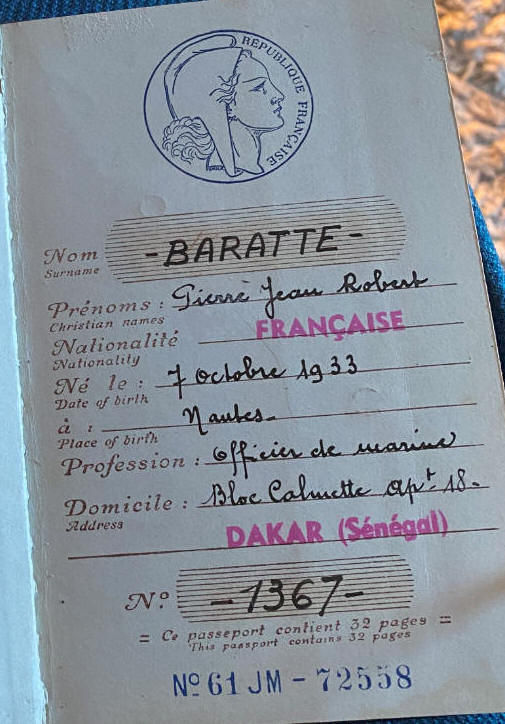 RÉPUBLIQUE FRANÇAISE
Nom -BARATTE-
Surname
Prénoms : Pierre Jean Robert
Christian names
Nationalité FRANÇAISE
Nationality
Né le : 7 octobre 1933
Date of birth
à : Nantes.
Place of birth
Profession : Officier de marine
Domicile : Bloc Calmette apt 18.
Address
DAKAR (Sénégal)
N.º -1367-
= Ce passeport contient 32 pages =
This passport contains 32 pages
Nº 61 JM - 72558